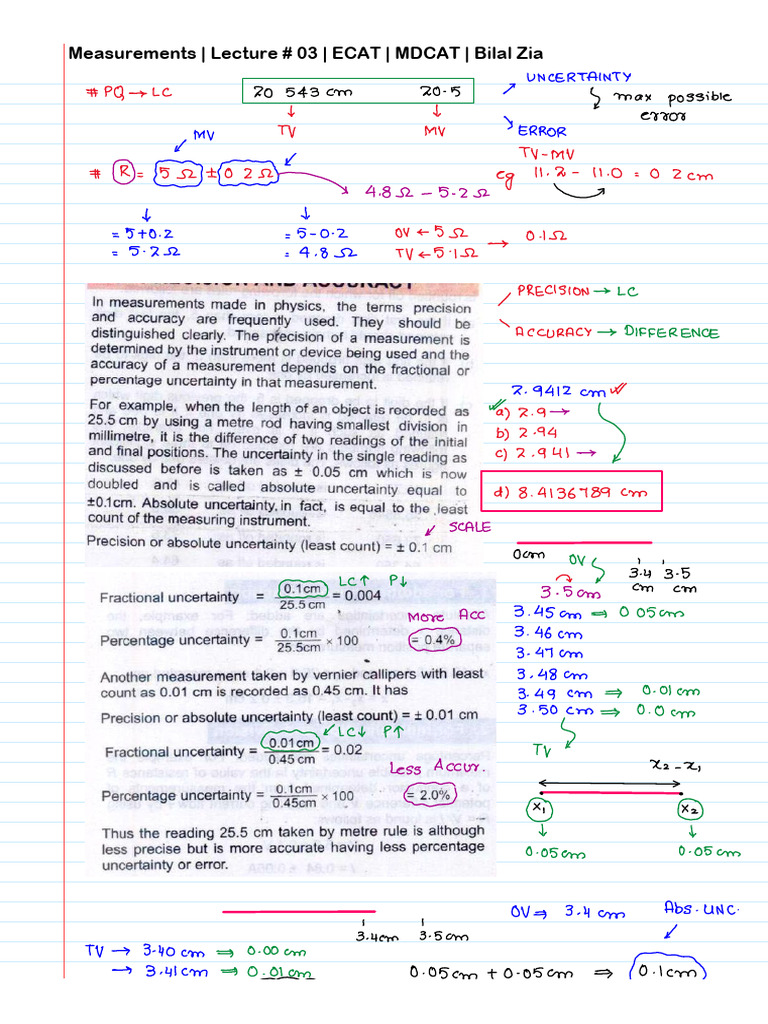 Measurements | Lecture # 03 | ECAT | MDCAT | Bilal Zia
# PQ → LC
20 543 cm 20.5
↓ TV
↓ MV
UNCERTAINTY
max possible
error
ERROR
TV-MV
eg 11.2 - 11.0 = 0 2 cm
MV
# R = 5 Ω ± 0 2 Ω
4.8 Ω - 5.2 Ω
= 5+0.2
= 5.2 Ω
= 5-0.2
= 4.8 Ω
OV ← 5 Ω
TV ← 5.1 Ω → 0.1 Ω
In measurements made in physics, the terms precision
and accuracy are frequently used. They should be
distinguished clearly. The precision of a measurement is
determined by the instrument or device being used and the
accuracy of a measurement depends on the fractional or
percentage uncertainty in that measurement.
For example, when the length of an object is recorded as
25.5 cm by using a metre rod having smallest division in
millimetre, it is the difference of two readings of the initial
and final positions. The uncertainty in the single reading as
discussed before is taken as ± 0.05 cm which is now
doubled and is called absolute uncertainty equal to
±0.1cm. Absolute uncertainty, in fact, is equal to the least
count of the measuring instrument.
SCALE
Precision or absolute uncertainty (least count) = ± 0.1 cm
LC↑ P↓
Fractional uncertainty = 0.1cm / 25.5 cm = 0.004
More Acc
Percentage uncertainty = 0.1cm / 25.5cm × 100 = 0.4%
Another measurement taken by vernier callipers with least
count as 0.01 cm is recorded as 0.45 cm. It has
Precision or absolute uncertainty (least count) = ± 0.01 cm
LC↓ P↑
Fractional uncertainty = 0.01 cm / 0.45 cm = 0.02
Less Accur.
Percentage uncertainty = 0.1cm / 0.45cm × 100 = 2.0%
Thus the reading 25.5 cm taken by metre rule is although
less precise but is more accurate having less percentage
uncertainty or error.
PRECISION → LC
ACCURACY → DIFFERENCE
2.9412 cm
a) 2.9 →
b) 2.94
c) 2.941 →
d) 8.4136789 cm
0cm
OV
3.4 cm
3.5 cm
3.5 cm
3.45 cm ⇒ 0 05 cm
3.46 cm
3.47 cm
3.48 cm
3.49 cm ⇒ 0.01 cm
3.50 cm ⇒ 0.0 cm
TV
x₂ - x₁
x₁ x₂
0.05 cm 0.05 cm
3.4cm 3.5cm
OV ⇒ 3.4 cm
Abs. UNC.
TV → 3.40 cm ⇒ 0.00 cm
→ 3.41 cm ⇒ 0.01 cm
0.05 cm + 0.05 cm ⇒ 0.1cm